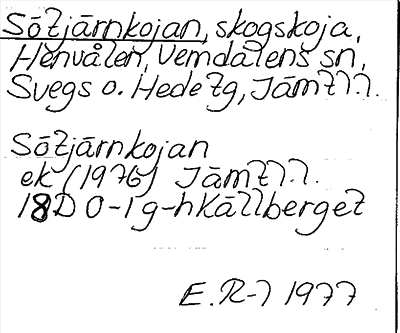 Sötjärnkojan, skogskoja,
Henvålen, Vemdalens sn,
Svegs o. Hede tg, Jämtl.l.
Sötjärnkojan
ek (1976) Jämtl.l.
18D 0-1g-h Källberget
E.R-l 1977